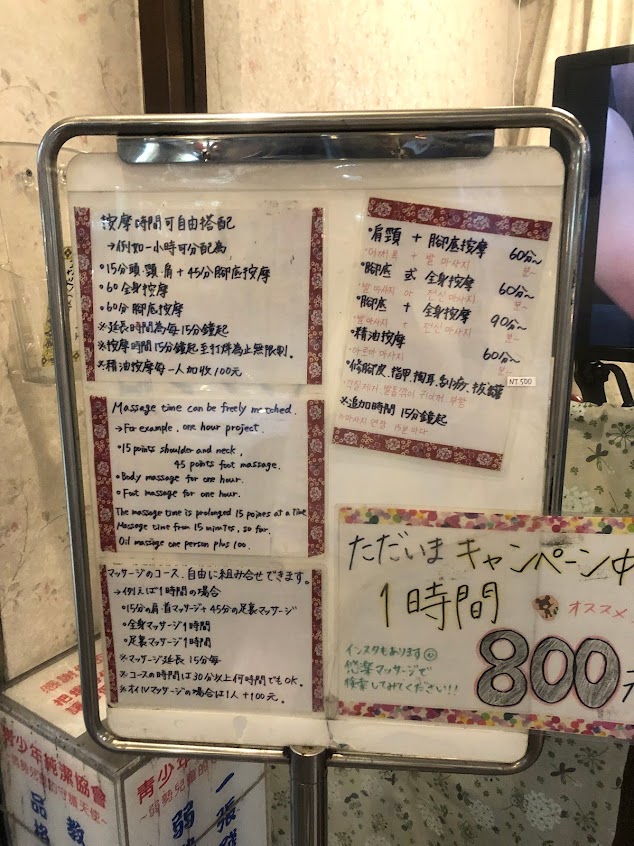 按摩時間可自由搭配
→例如一小時可分配為
•15分頭.頸.肩+45分腳底按摩
•60全身按摩
•60分腳底按摩
※延長時間為每15分鐘起
※按摩時間15分鐘起至打烊為止無限制。
※精油按摩每一人加收100元。
Massage time can be freely matched.
→For example, one hour project.
•15 points shoulder and neck,
45 points foot massage.
•Body massage for one hour.
•Foot massage for one hour.
The massage time is prolonged 15 points at a time
Massage time from 15 minutes, so far.
Oil massage one person plus 100.
マッサージのコース、自由に組み合せできます。
→例えば1時間の場合
•15分の肩.首マッサージ+45分の足裏マッサージ
•全身マッサージ1時間
•足裏マッサージ1時間
※マッサージ延長 15分毎
※コースの時間は30分以上何時間でもOK.
※オイルマッサージの場合は1人+100元.
•肩頸 + 腳底按摩 60分~
•어깨목 + 발 마사지 분~
•腳底 或 全身按摩 60分~
•발마사지 or 전신마사지 분~
•腳底 + 全身按摩 90分~
발마사지 + 전신마사지 분~
•精油按摩 60分~
아로마 마사지 분~
•修腳皮.指甲.掏耳.刮痧.拔罐 NT.500
※追加時間 15分鐘起
ただいま キャンペーン中
1時間
オススメ
800元
インスタもあります
悠楽マッサージで
検索してみてください!!
感謝
青少年純潔協會
品格
青少年
一張
弱勢